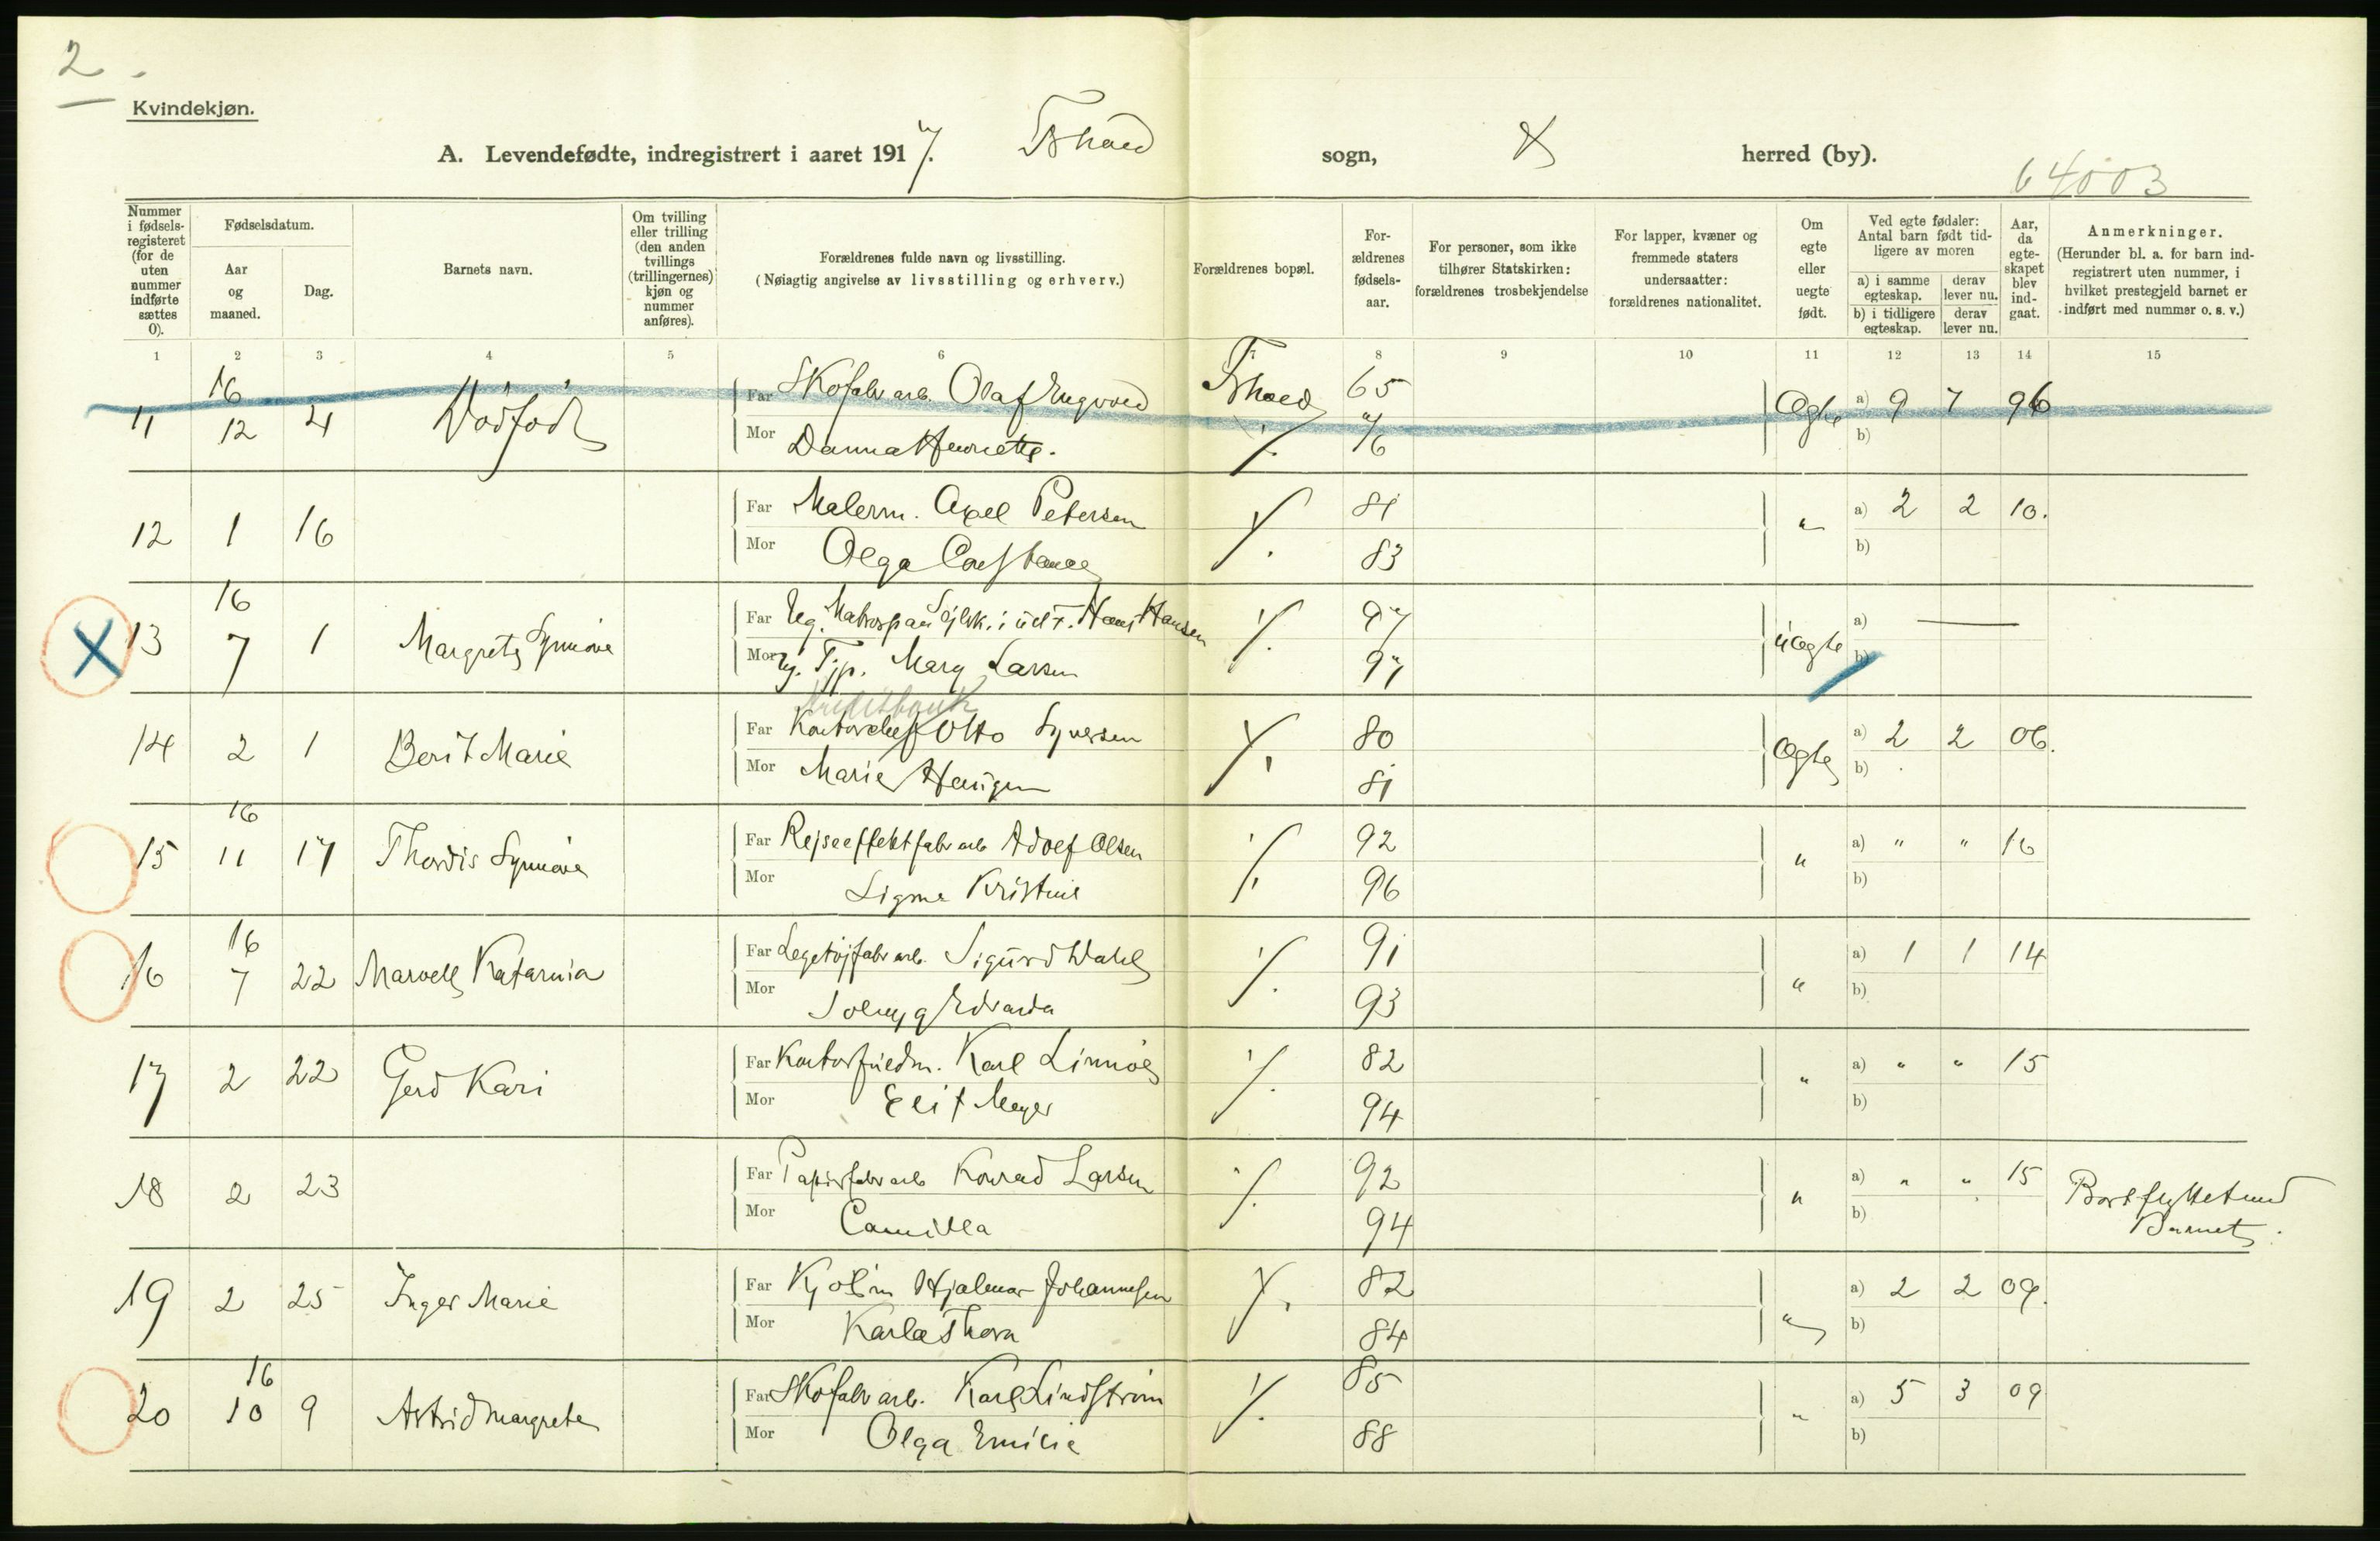 2.
Kvindekjøn.
A. Levendefødte, indregistrert i aaret 1917. sogn, herred (by).
64003
Nummer i fødsels-registeret (for de uten nummer indførte sættes 0).
Fødselsdatum.
Aar og maaned.
Dag.
Barnets navn.
Om tvilling eller trilling (den anden tvillings (trillingernes) kjøn og nummer anføres).
Forældrenes fulde navn og livsstilling.
(Nøiagtig angivelse av livsstilling og erhverv.)
Forældrenes bopæl.
For-ældrenes fødsels-aar.
For personer, som ikke tilhører Statskirken: forældrenes trosbekjendelse
For lapper, kvæner og fremmede staters undersaatter: forældrenes nationalitet.
Om egte eller uegte født.
Ved egte fødsler: Antal barn født tid-ligere av moren
a) i samme egteskap. derav lever nu.
b) i tidligere egteskap. derav lever nu.
Aar, da egte-skapet blev ind-gaat.
Anmerkninger.
(Herunder bl. a. for barn ind-registrert uten nummer, i hvilket prestegjeld barnet er indført med nummer o. s. v.)
1 2 3 4 5 6 7 8 9 10 11 12 13 14 15
11 16 12 4 Dødfødt Far Skofabr arb. Olaf Engvold 65 Ægte a) 9 7 96
Mor Danna Henriette. 76 b)
12 1 16 Far Malerm. Axel Petersen 81 " a) 2 2 10.
Mor Olga Constance 83 b)
13 16 7 1 Margrete Synnøve Far Ug. Hans Hansen 97 uægte a) —
Mor Ug. Mary Larsen 97 b)
Kreditbank
14 2 1 Berit Marie Far Kontorchef Otto Syversen 80 Ægte a) 2 2 06.
Mor Marie Haugen 81 b)
15 16 11 17 Thordis Synnøve Far Rejseeffektfabr arb Adolf Olsen 92 " a) " " 16
Mor Signe Kristine 96 b)
16 16 7 22 Katarina Far Legetøjfabr arb. Sigurd Dahl 91 " a) 1 1 14
Mor Solveig Edvarda 93 b)
17 2 22 Gerd Kari Far Kontorfuldm. Karl Linnøe 82 " a) " " 15
Mor Elif Meyer 94 b)
18 2 23 Far Papirfabr arb Konrad Larsen 92 " a) " " 15 Bortflyttet med
Mor Camilla 94 b) Barnet.
19 2 25 Inger Marie Far Kjøbm Hjalmar Johannesen 82 " a) 2 2 09.
Mor Karla Thora 84 b)
20 16 10 9 Astrid Margrete Far Skofabr arb. Karl Lindstrøm 85 " a) 5 3 09
Mor Olga Emilie 88 b)